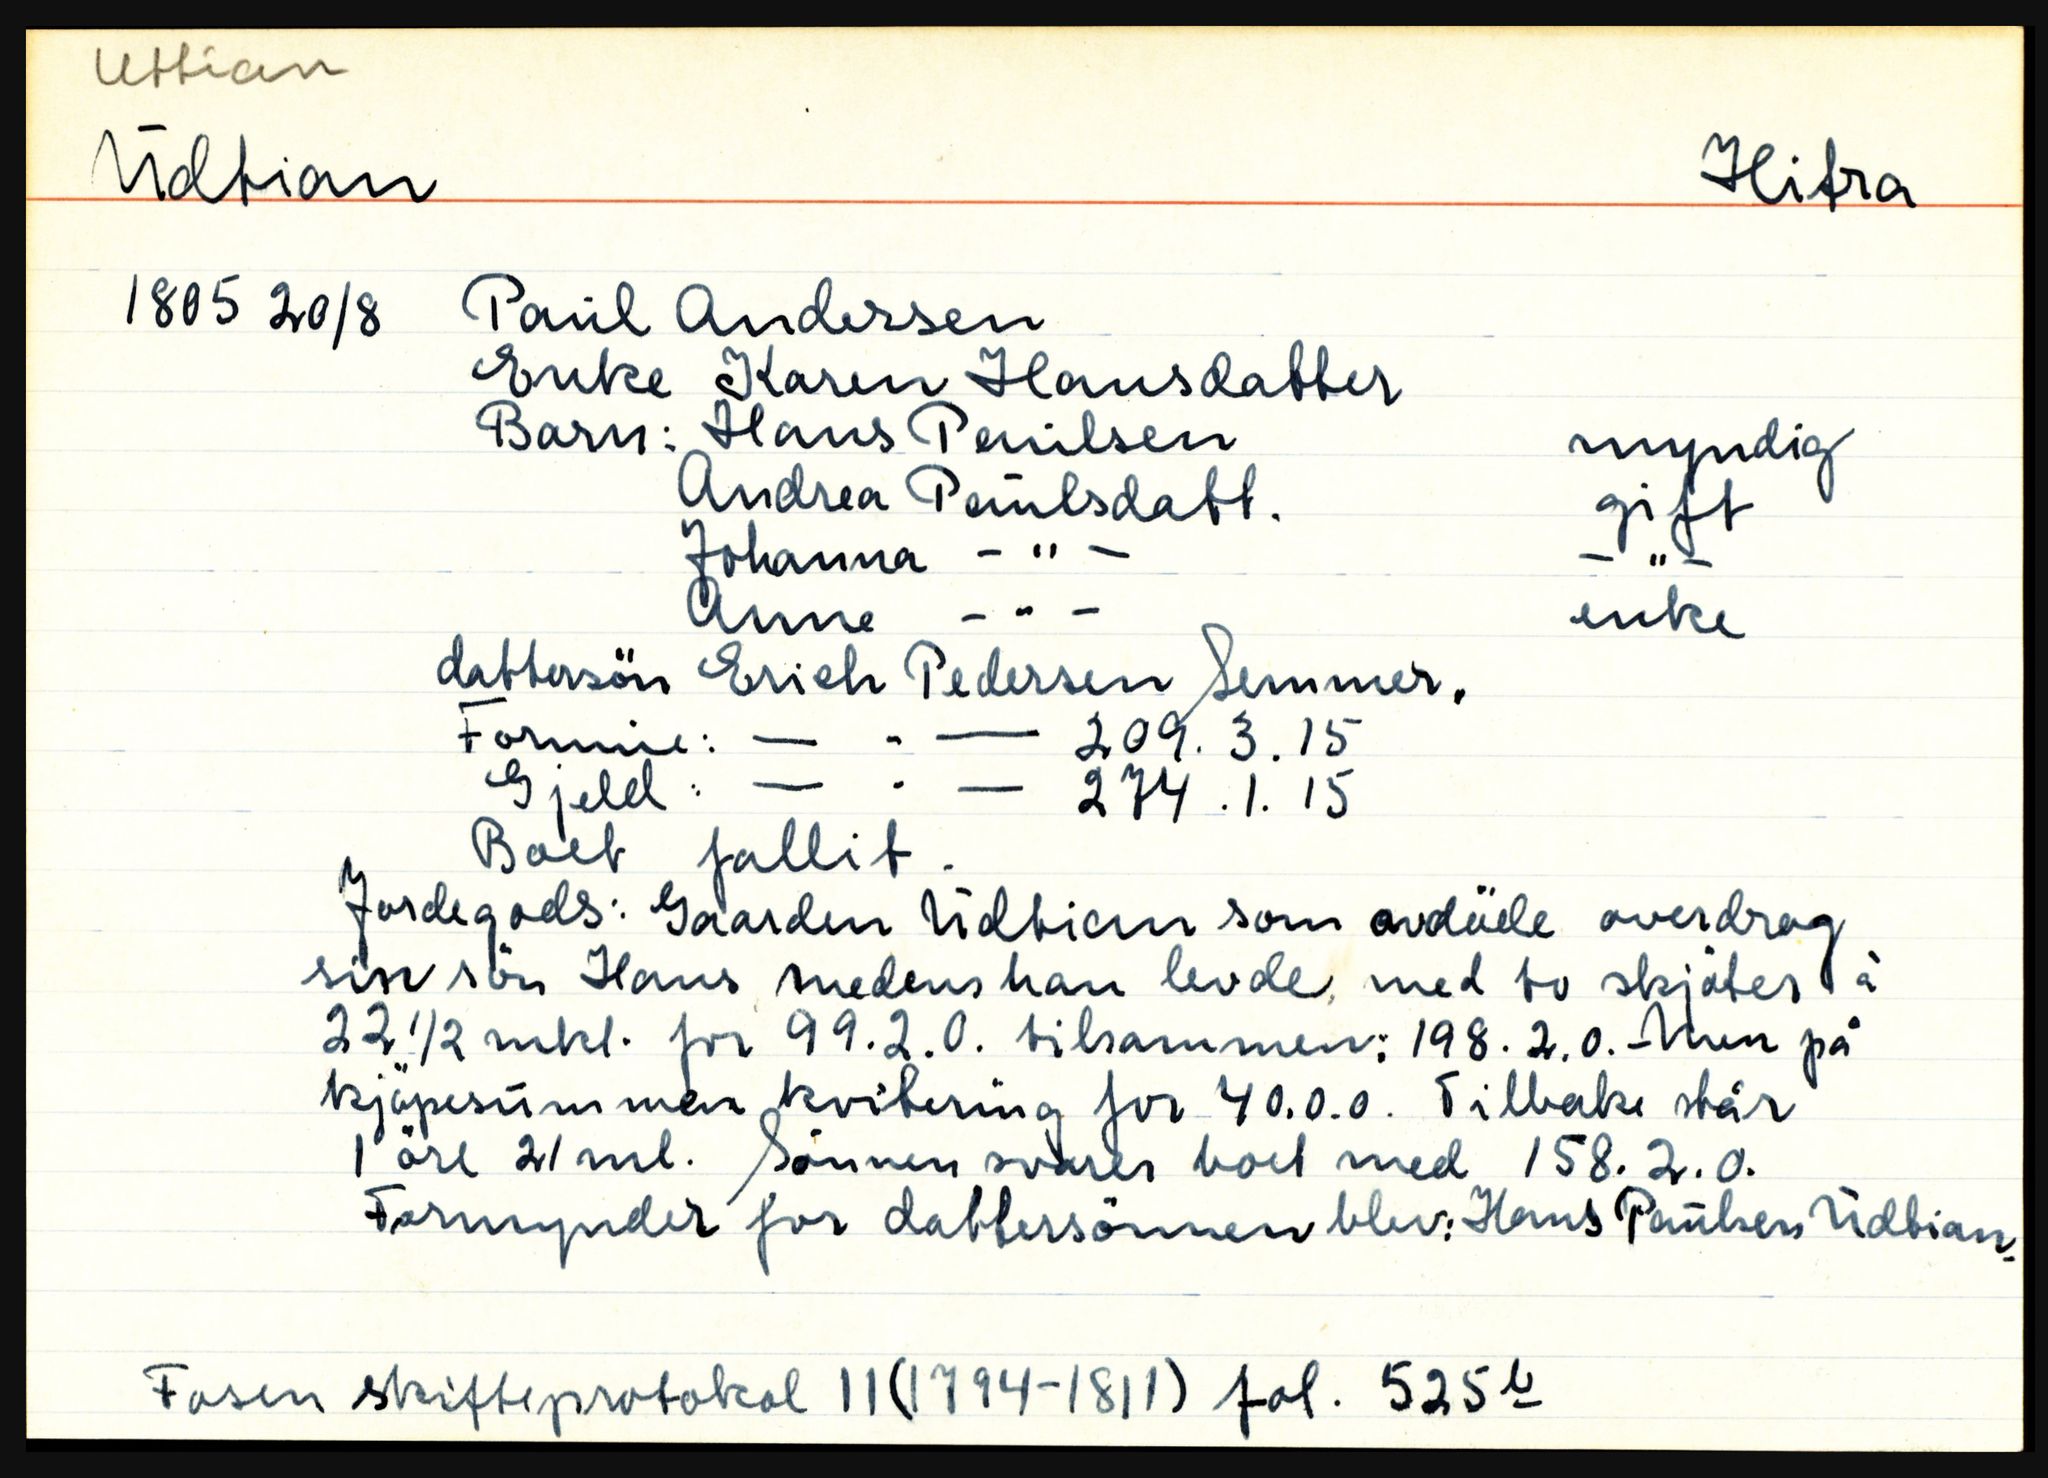 Uttian
Udtian Hitra
1805 20/8 Paul Andersen
Enke Karen Hansdatter
Barn: Hans Paulsen myndig
Andrea Paulsdatt. gift
Johanna - " - - " -
Anne - " - enke
dattersön Erich Pedersen Semmer.
Formue: — " — 209. 3. 15
Gjeld: — " — 274. 1. 15
Boet fallit.
Jordegods: Gaarden Udtian som avdöde overdrog
sin sön Hans medens han levde, med to skjöter à
22 1/2 mkl. for 99.2.0. tilsammen: 198. 2. 0. - Men på
kjöpesummen kvitering for 40.0.0. Tilbake står
1 öre 21 ml. Sönnen svarer boet med 158. 2. 0.
Formynder for dattersönnen blev: Hans Paulsen Udtian.
Fosen skifteprotokol 11 (1794-1811) fol. 525 b